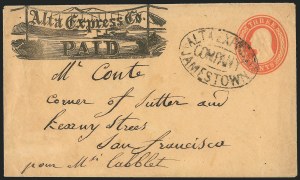 Alta Express Co.
PAID
ALTA EXPRESS
COMPANY
JAMESTOWN
Mr Conte
corner of Sutter and
Kearny Streets
San Francisco
pour Mr